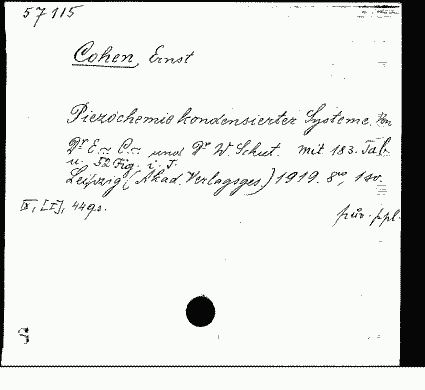 57115
Cohen, Ernst
Piezochemie kondensierter Systeme. Von
Dr E~ C~ und Dr W. Schut. mit 183. Tab.
u. 52 Fig. i. T.
Leipzig (Akad. Verlagsges) 1919. 8vo,
IX, [I], 449s.
pův. ppl.